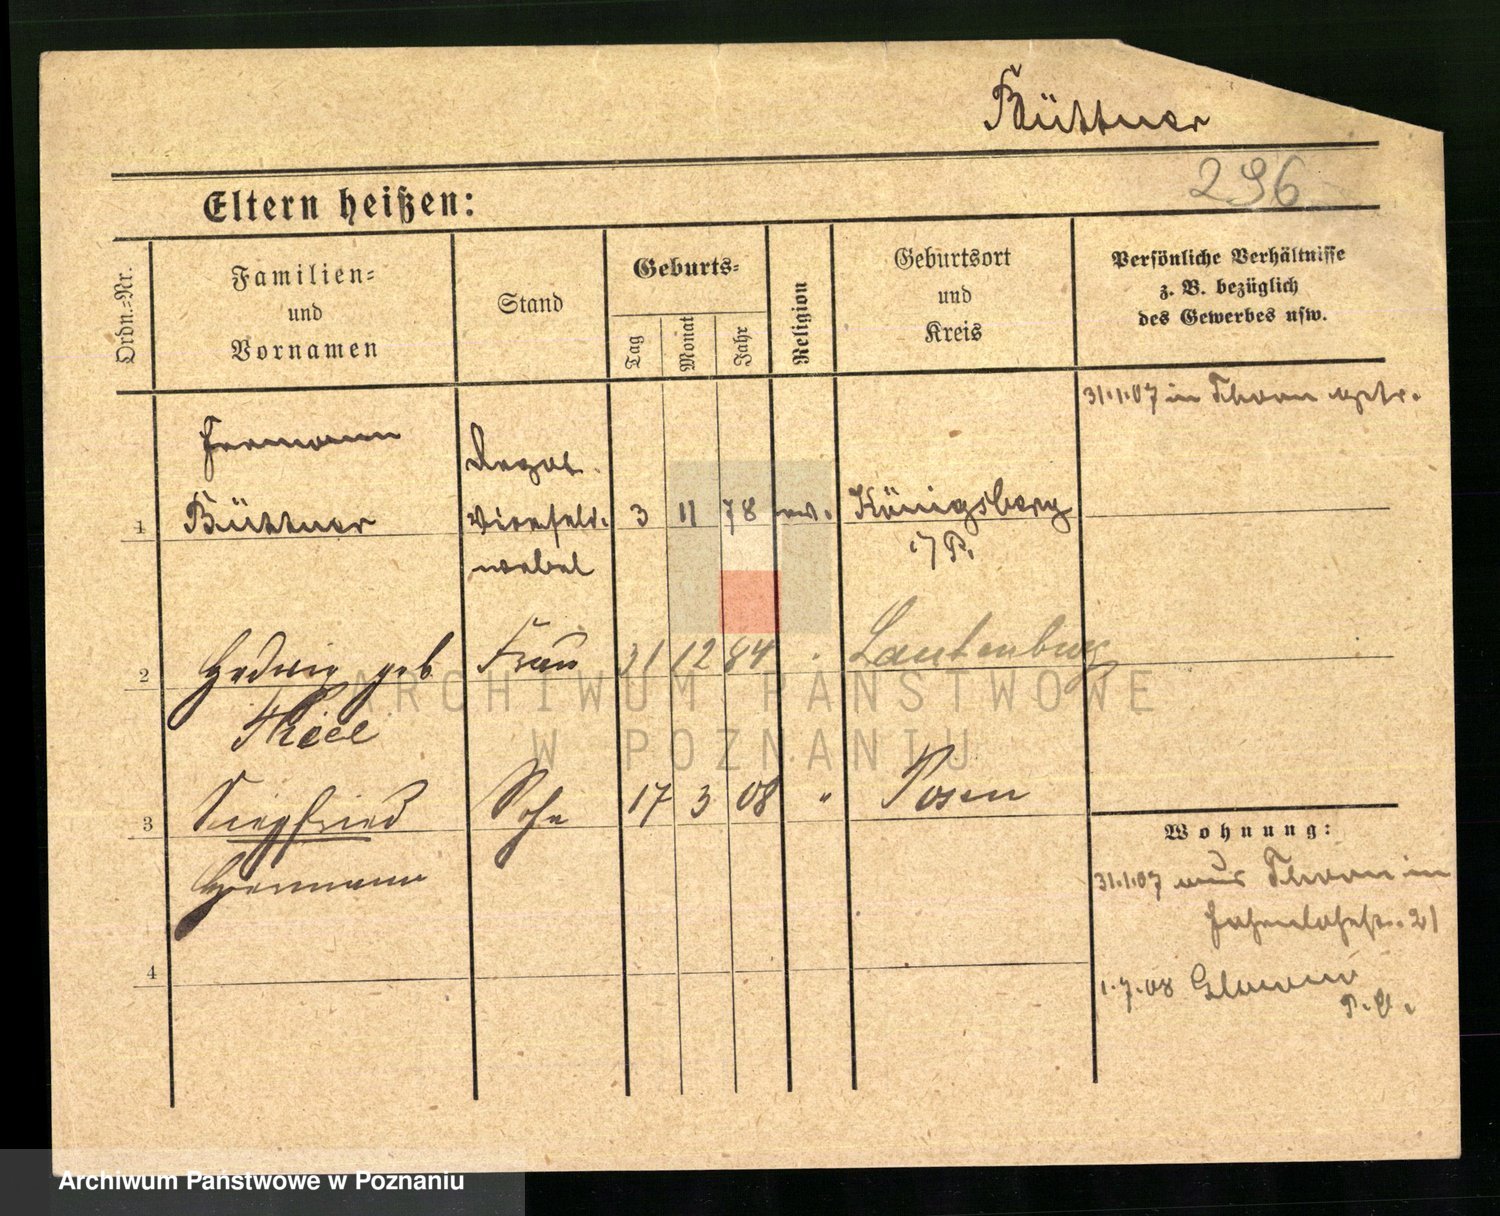 Büttner
296
Eltern heißen:
Ordn.-Nr.
Familien-
und
Vornamen
Stand
Geburts-
Tag
Monat
Jahr
Religion
Geburtsort
und
Kreis
Persönliche Verhältnisse
z. B. bezüglich
des Gewerbes usw.
31.1.07 in Thorn
Hermann
1 Büttner
Vizefeld-
webel
3 11 78 ev. Königsberg
i/P.
2 Hedwig geb Frau 31 12 84 " Lautenburg
Thiel
3 Siegfried Sohn 17 3 08 " Posen
Hermann
4
Wohnung:
31.1.07 aus Thorn in
Hohenlohestr. 21
1.7.08 Glowno
P. O.
ARCHIWUM PAŃSTWOWE
W POZNANIU
Archiwum Państwowe w Poznaniu